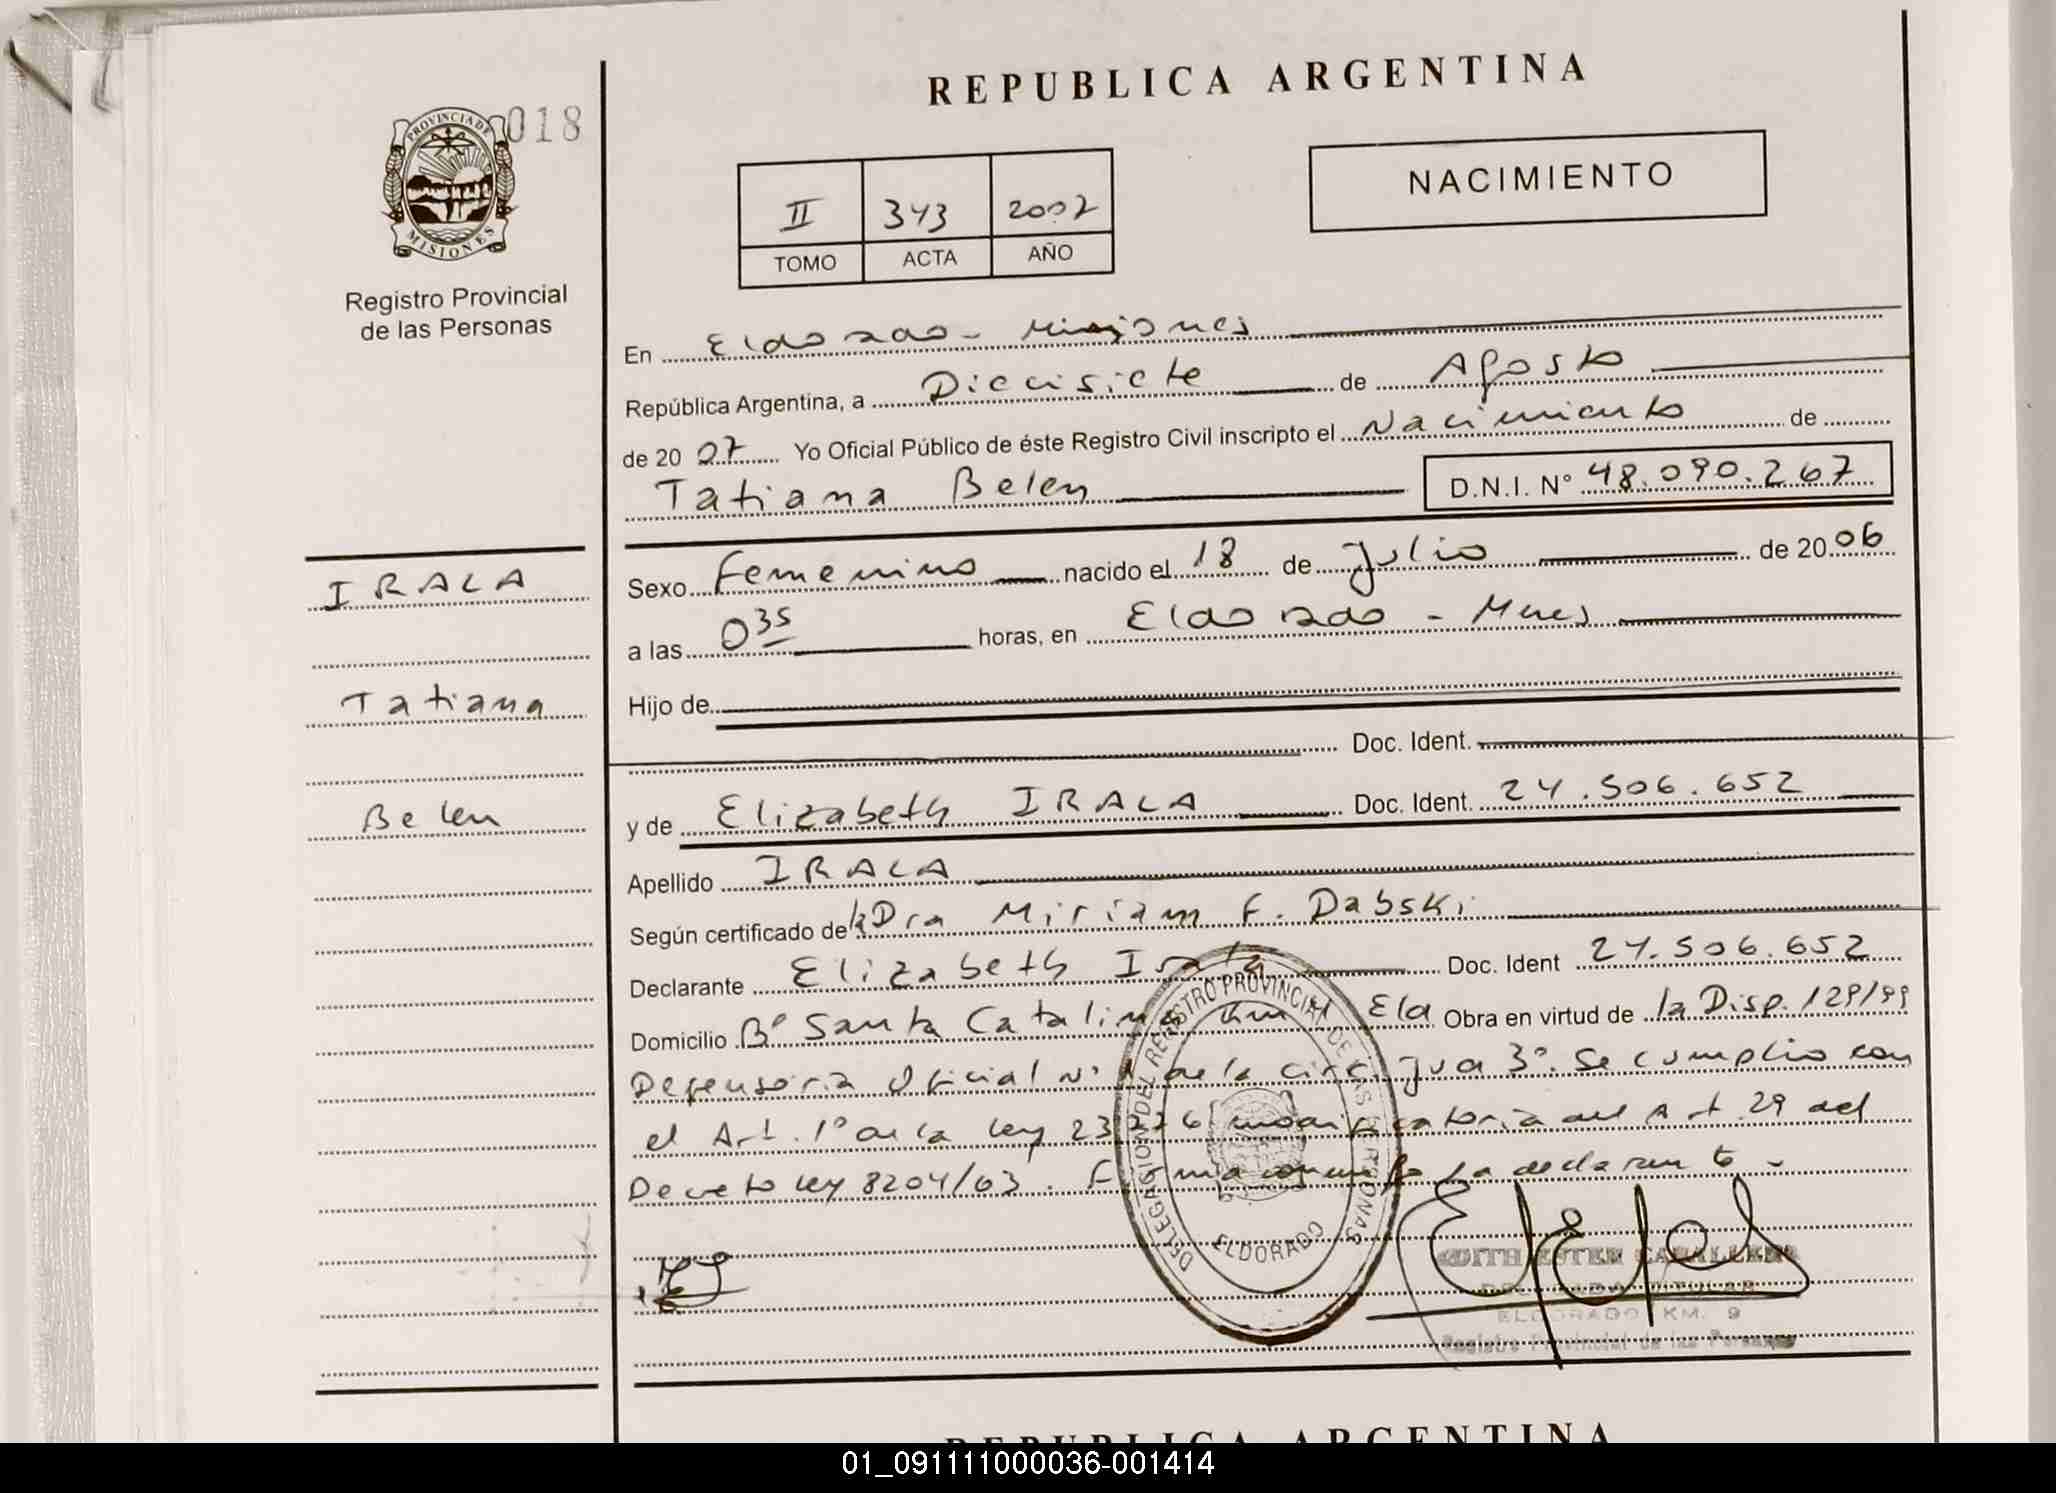 REPUBLICA ARGENTINA
PROVINCIA DE
MISIONES
018
Registro Provincial
de las Personas
II 343 2007
TOMO ACTA AÑO
NACIMIENTO
En Eldorado - Misiones
República Argentina, a Diecisiete de Agosto
de 2007 Yo Oficial Público de éste Registro Civil inscripto el Nacimiento de
Tatiana Belen D.N.I. N° 48.090.267
IRALA
Tatiana
Belen
Sexo Femenino nacido el 18 de Julio de 2006
a las 0 35 horas, en Eldorado - Mnes
Hijo de
Doc. Ident.
y de Elizabeth IRALA Doc. Ident. 24.506.652
Apellido IRALA
Según certificado de la Dra Miriam F. Dabski
Declarante Elizabeth Irala Doc. Ident 24.506.652
Domicilio B° Santa Catalina Km Eld Obra en virtud de la Disp. 129/99
Defensoria Oficial N° de la Circ. Jud 3°. Se cumplio con
el Art. 1° de la Ley 23226 modificatoria del Art. 29 del
Decreto Ley 8204/63. Firma la declarante -
DELEGACION DEL REGISTRO PROVINCIAL DE LAS PERSONAS
ELDORADO
EDITH ESTER CABALLERO
DELEGADA TITULAR
ELDORADO KM. 9
Registro Provincial de las Personas
REPUBLICA ARGENTINA
01_091111000036-001414